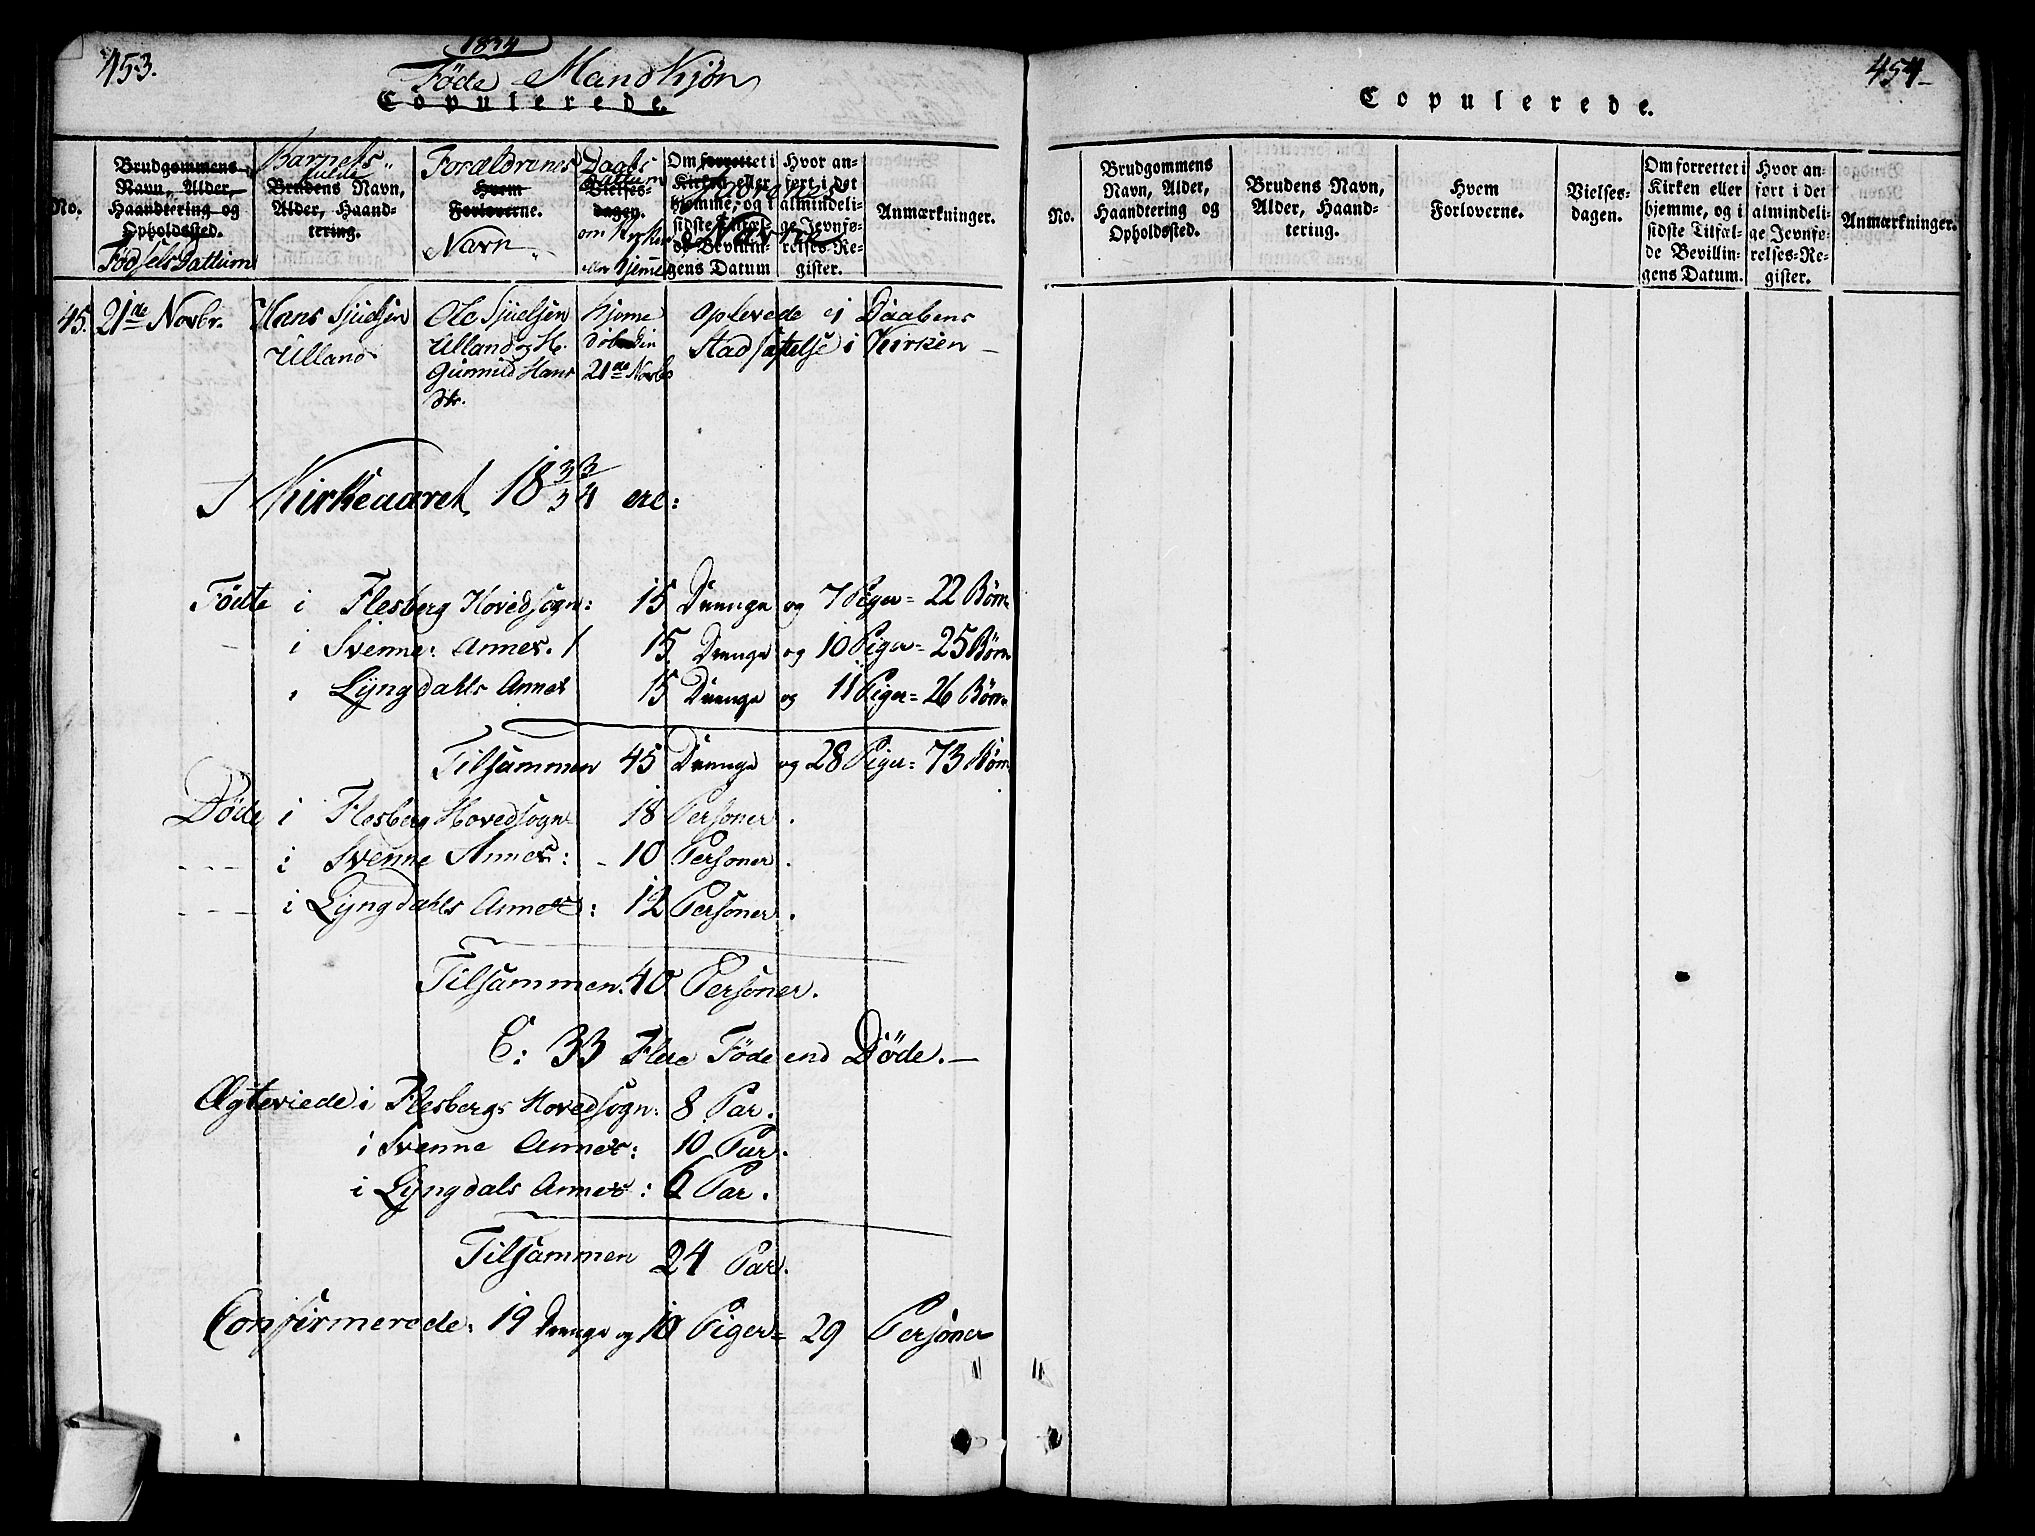 453.
1834
Føde Mandkjøn
Copulerede.
No.
Brudgommens
Navn, Alder,
Haandtering og
Opholdssted.
Fødsels Dattum
Barnets
fulde
Brudens Navn,
Alder, Haand-
tering.
Forældrenes
Hvem
Forloverne.
Navn
Daabs
Dattum
Vielses-
dagen.
om Kirken
eller hjeme
Om forrettet i
Kirken eller
hjemme, og i
sidste Tilfæl-
de Bevillin-
gens Datum
Navne
Hvor an-
ført i det
almindeli-
ge Jevnfø-
relses-Re-
gister.
Anmærkninger.
45. 21de Novbr.
Hans Sjulsen
Ulland
Ole Sjulsen
Ulland og H.
Gunnild Hans
dtr.
hjeme
døbt den
21de Novbr
Oplevede ej Daabens
Stadfæstelse i Kirken —
I Kirkeaaret 1833/34 ere:
Fødte i Flesberg Hovedsogn: 15 Drenge og 7 Piger = 22 Børn
— i Svenne Annex. 15 Drenge og 10 Piger = 25 Børn
Lÿngdahls Annex 15 Drenge og 11 Piger = 26 Børn
Tilsammen 45 Drenge og 28 Piger = 73 Børn
Døde i Flesberg Hovedsogn 18 Personer.
- - - i Svenne Annex: - 10 Personer.
- - - i Lÿngdahls Annex: 12 Personer.
Tilsammen 40 Personer.
C: 33 Flere Føde end Døde. —
Ægteviede i Flesbergs Hovedsogn: 8 Par.
i Svenne Annex: 10 Par.
i Lÿngdals Annex: 6 Par.
Tilsammen 24 Par.
Confirmerede: 19 Drenge og 10 Piger = 29 Personer
454
Copulerede.
No.
Brudgommens
Navn, Alder,
Haandtering og
Opholdssted.
Brudens Navn,
Alder, Haand-
tering.
Hvem
Forloverne.
Vielses-
dagen.
Om forrettet i
Kirken eller
hjemme, og i
sidste Tilfæl-
de Bevillin-
gens Datum.
Hvor an-
ført i det
almindeli-
ge Jevnfø-
relses-Re-
gister.
Anmærkninger.